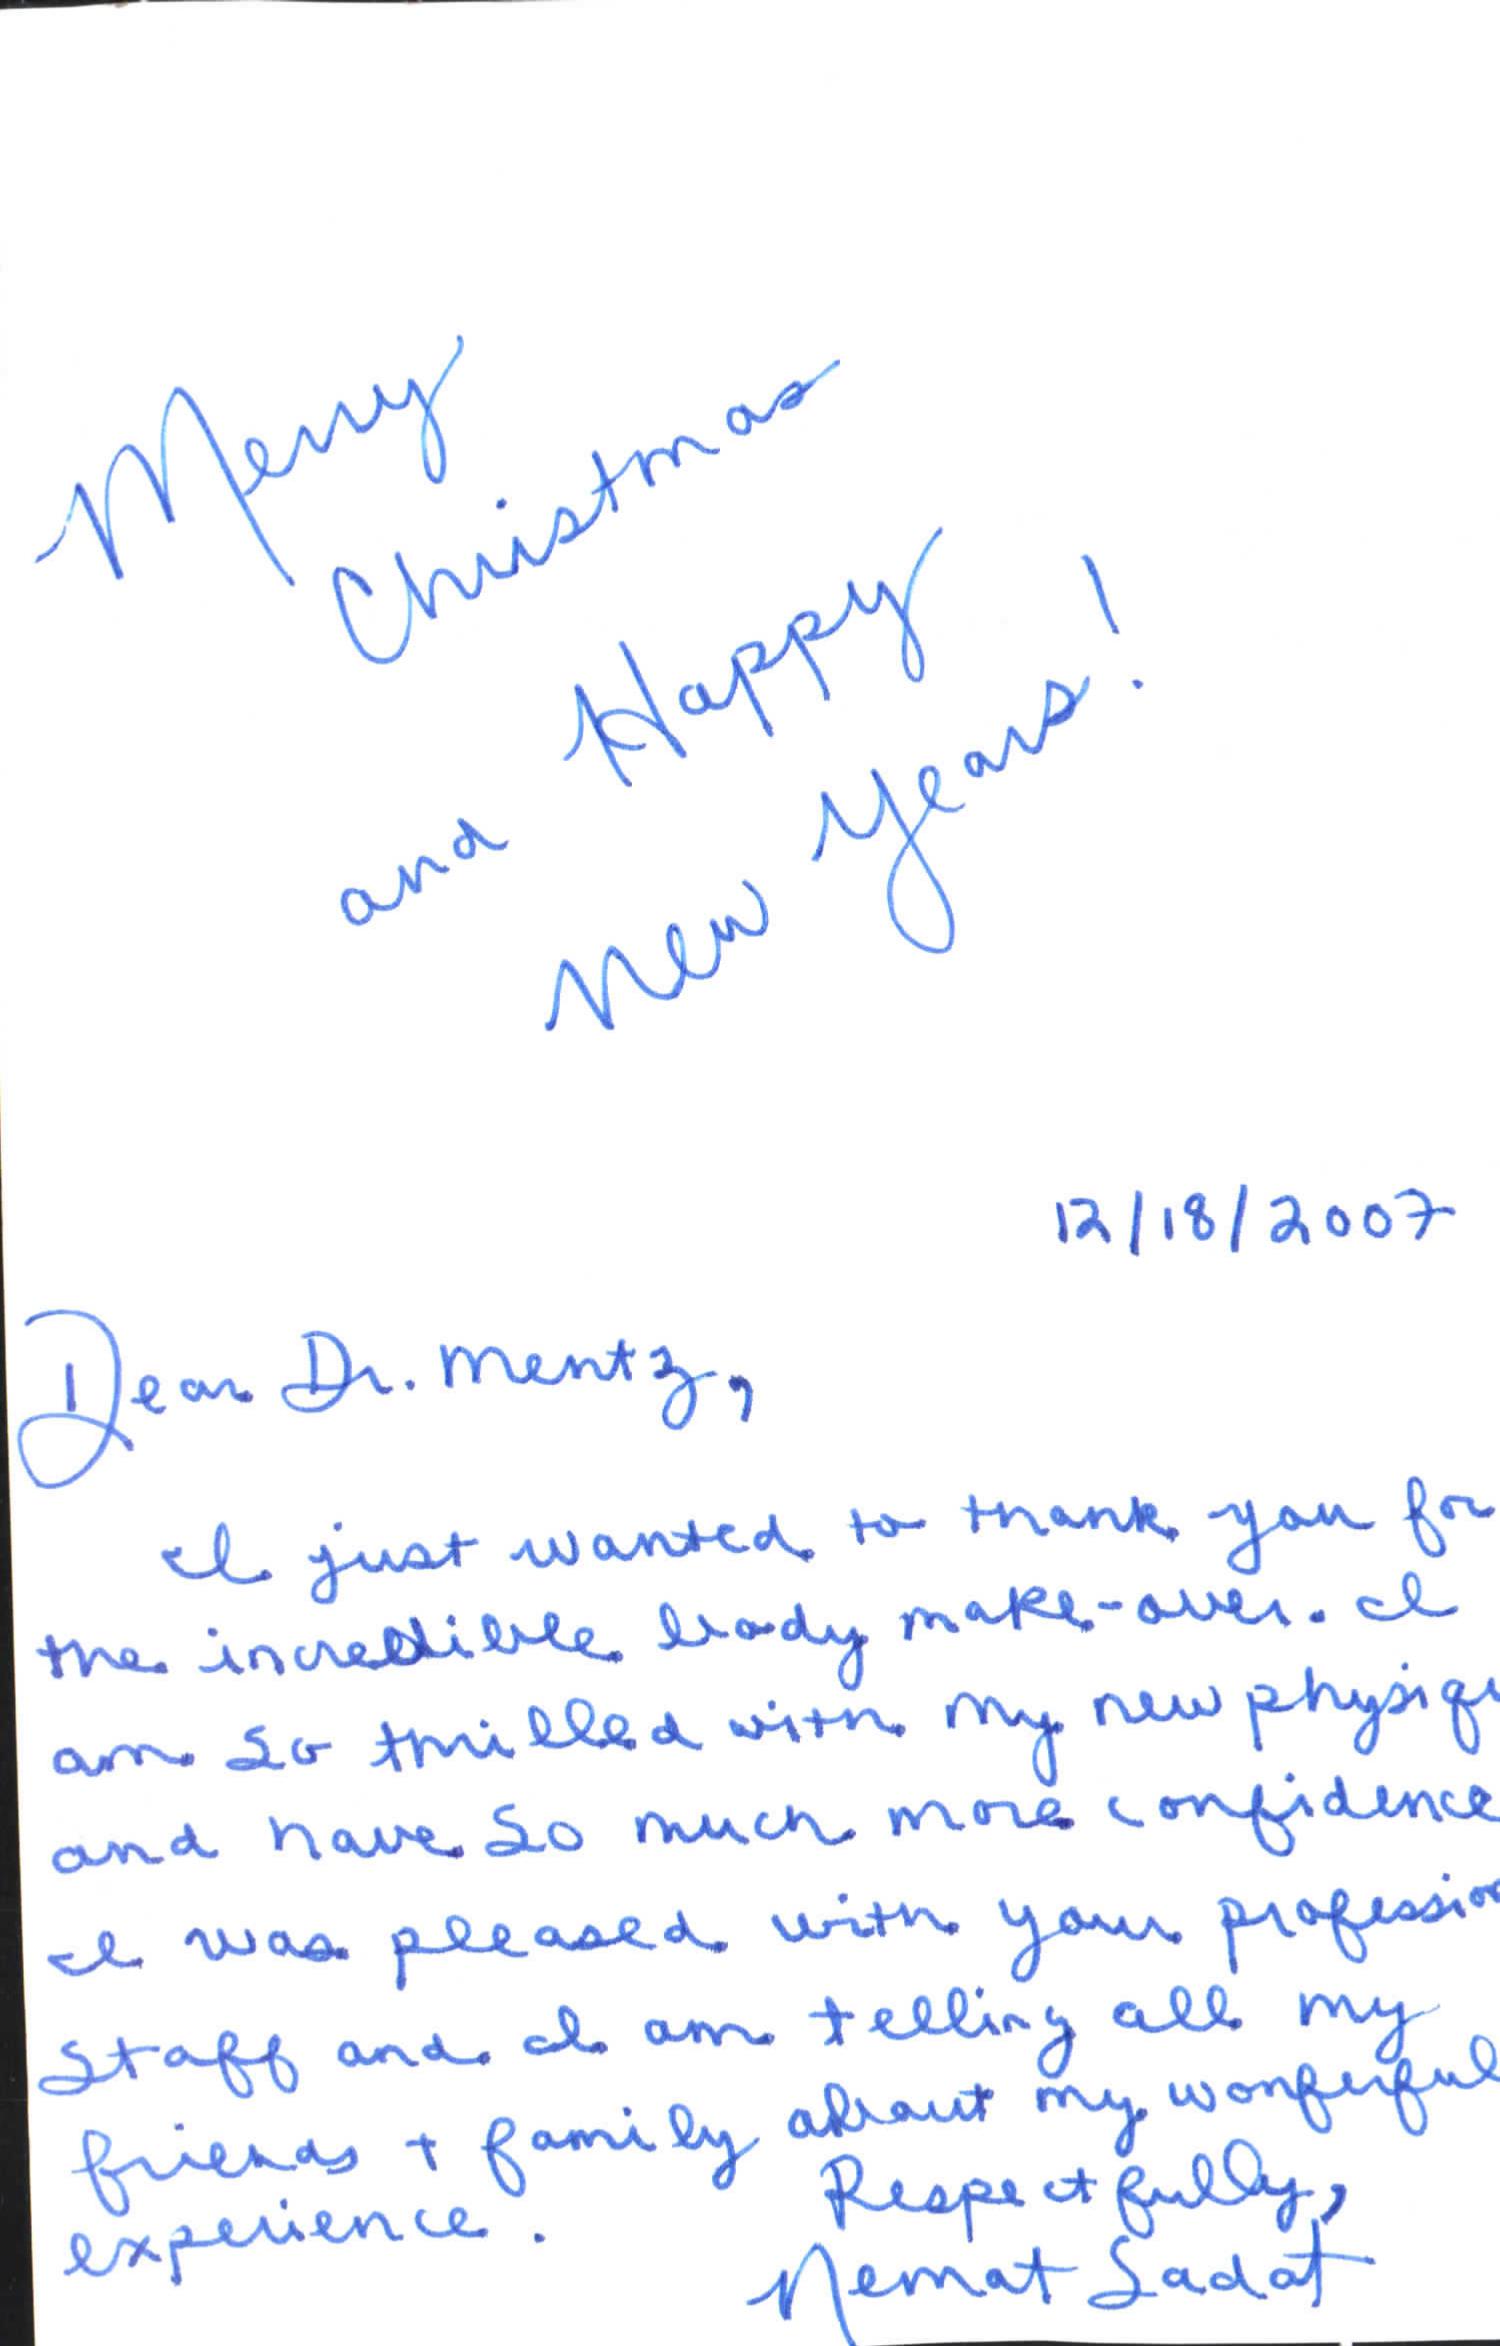 Merry
Christmas
and Happy
New Years!
12/18/2007
Dear Dr. Mentz,
I just wanted to thank you for
the incredible body make-over. I
am so thrilled with my new physiqu
and have so much more confidence
I was pleased with your profession
staff and I am telling all my
friends + family about my wonferful
experience.
Respectfully,
Nemat Sadat